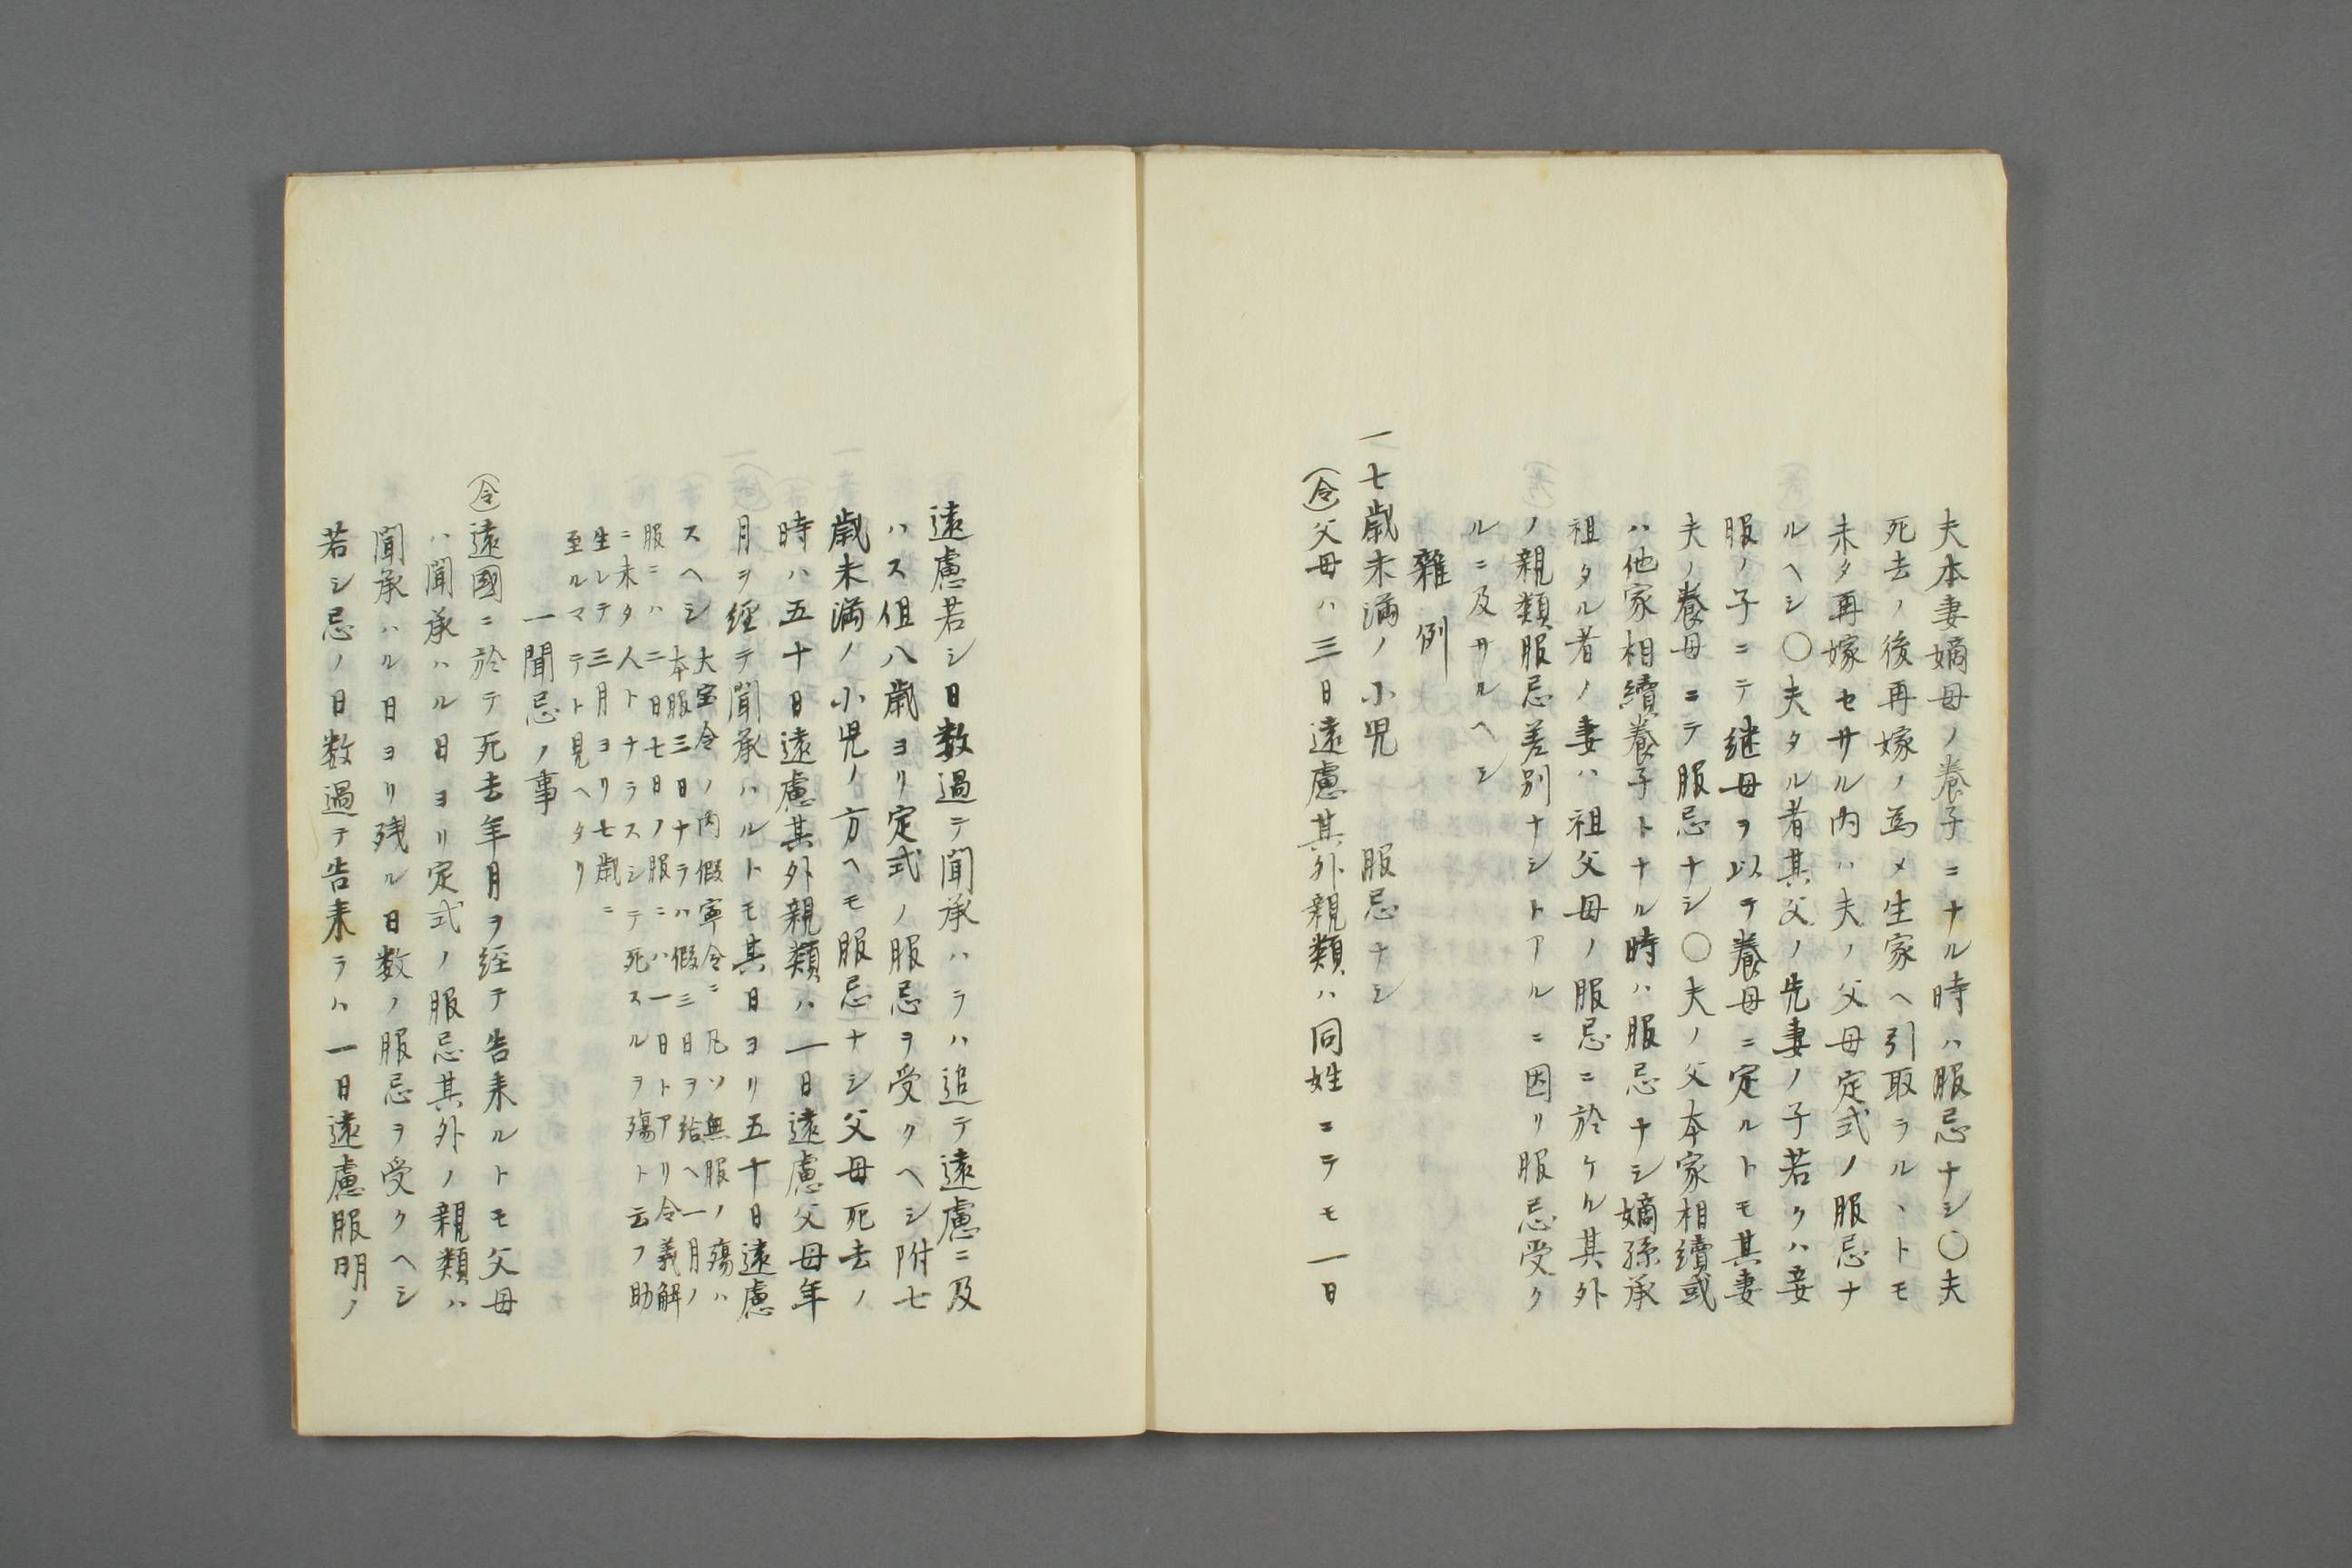 夫本妻嫡母ノ養子ニナル時ハ服忌ナシ〇夫
死去ノ後再嫁ノ為メ生家ヘ引取ラルヽトモ
未タ再嫁セサル内ハ夫ノ父母定式ノ服忌ナ
ルヘシ〇夫タル者其父ノ先妻ノ子若クハ妾
服ノ子ニテ継母ヲ以テ養母ニ定ルトモ其妻
夫ノ養母ニテ服忌ナシ〇夫ノ父本家相續或
ハ他家相續養子トナル時ハ服忌ナシ嫡孫承
祖タル者ノ妻ハ祖父母ノ服忌ニ於ケル其外
ノ親類服忌差別ナシトアルニ因リ服忌受ク
ルニ及サルヘシ
雜例
一七歳未満ノ小児　服忌ナシ
(令)父母ハ三日遠慮其外親類ハ同姓ニテモ一日
遠慮若シ日数過テ聞承ハラハ追テ遠慮ニ及
ハス但八歳ヨリ定式ノ服忌ヲ受クヘシ附七
歳未満ノ小児ノ方ヘモ服忌ナシ父母死去ノ
時ハ五十日遠慮其外親類ハ一日遠慮父母年
月ヲ経テ聞承ハルトモ其日ヨリ五十日遠慮
スヘシ
大宝令ノ内假寧令ニ凡ソ無服ノ殤ハ
本服三日ナラハ假三日ヲ給ヘ一月ノ
服ニハ二日七日ノ服ニハ一日トアリ令義解
ニ未タ人トナラスシテ死スルヲ殤ト云フ助
生レテ三月ヨリ七歳ニ
至ルマテト見ヘタリ
一聞忌ノ事
(令)遠國ニ於テ死去年月ヲ経テ告来ルトモ父母
ハ聞承ハル日ヨリ定式ノ服忌其外ノ親類ハ
聞承ハル日ヨリ残ル日数ノ服忌ヲ受クヘシ
若シ忌ノ日数過テ告来ラハ一日遠慮服明ノ